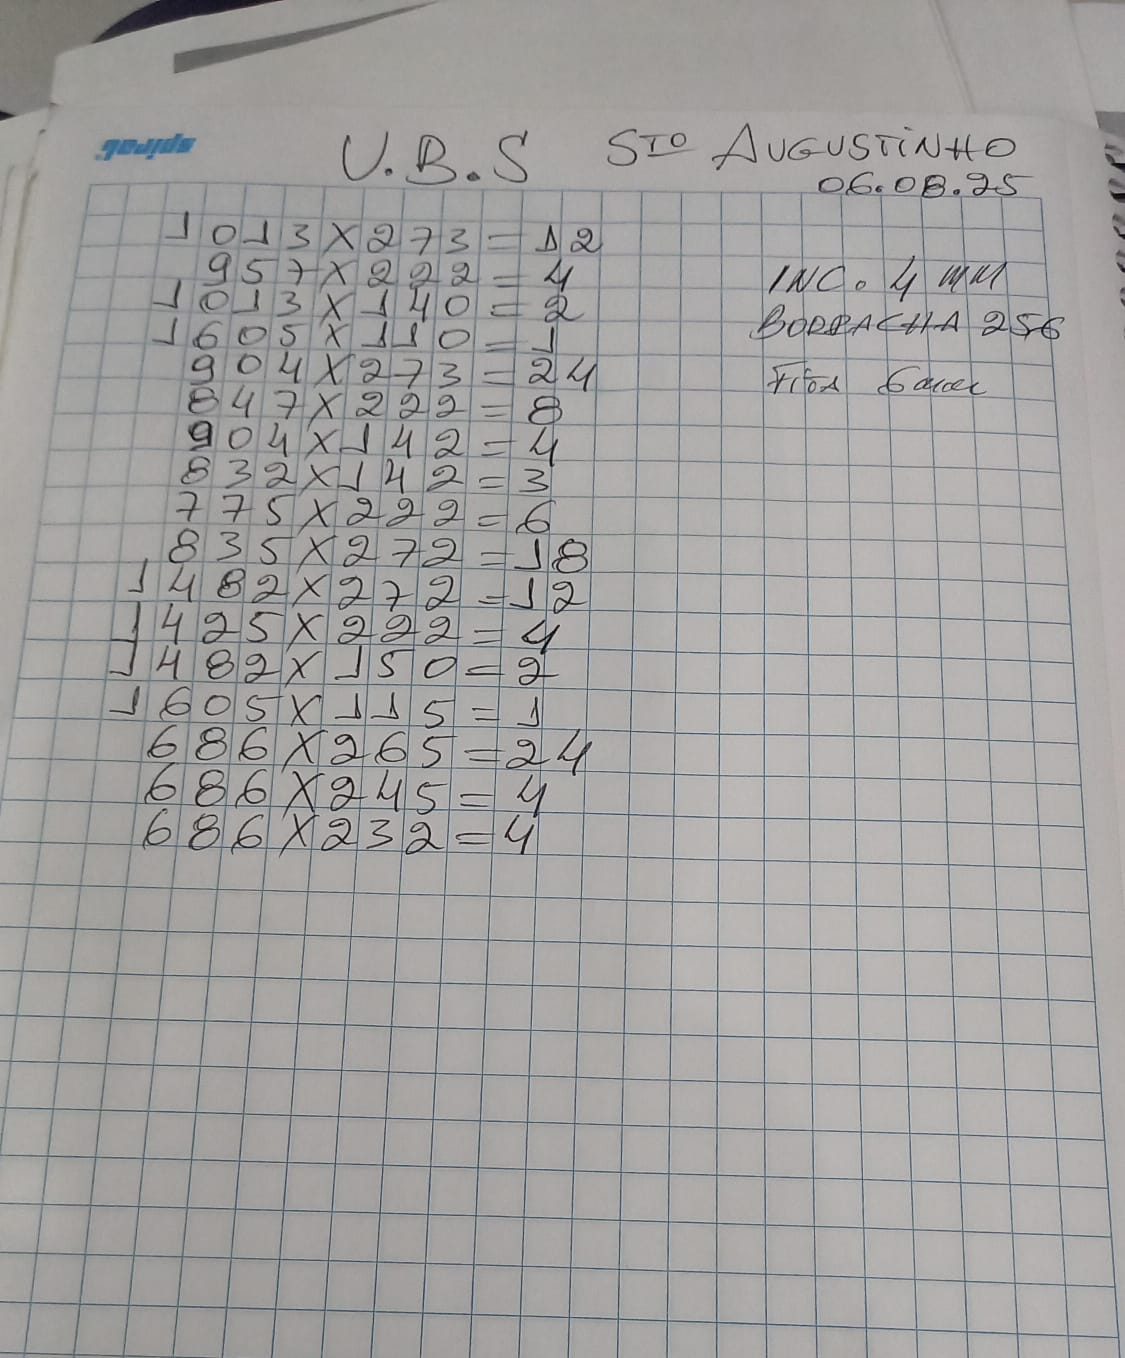 spiral
U.B.S STO AUGUSTINHO
06.08.25
1013X273=12
957X222=4
1013X140=2
1605X110=1
904X273=24
847X222=8
904X142=4
832X142=3
775X222=6
835X272=18
1482X272=12
1425X222=4
1482X150=2
1605X115=1
686X265=24
686X245=4
686X232=4
INC. 4 MM
BORRACHA 256
FITA